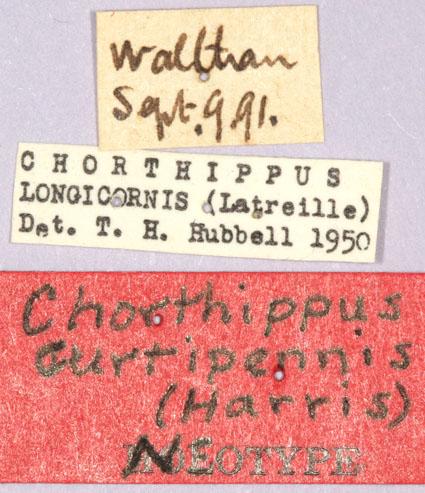 Waltham
Sept. 9. 91.
CHORTHIPPUS
LONGICORNIS (Latreille)
Det. T. H. Hubbell 1950
Chorthippus
curtipennis
(Harris)
NEOTYPE